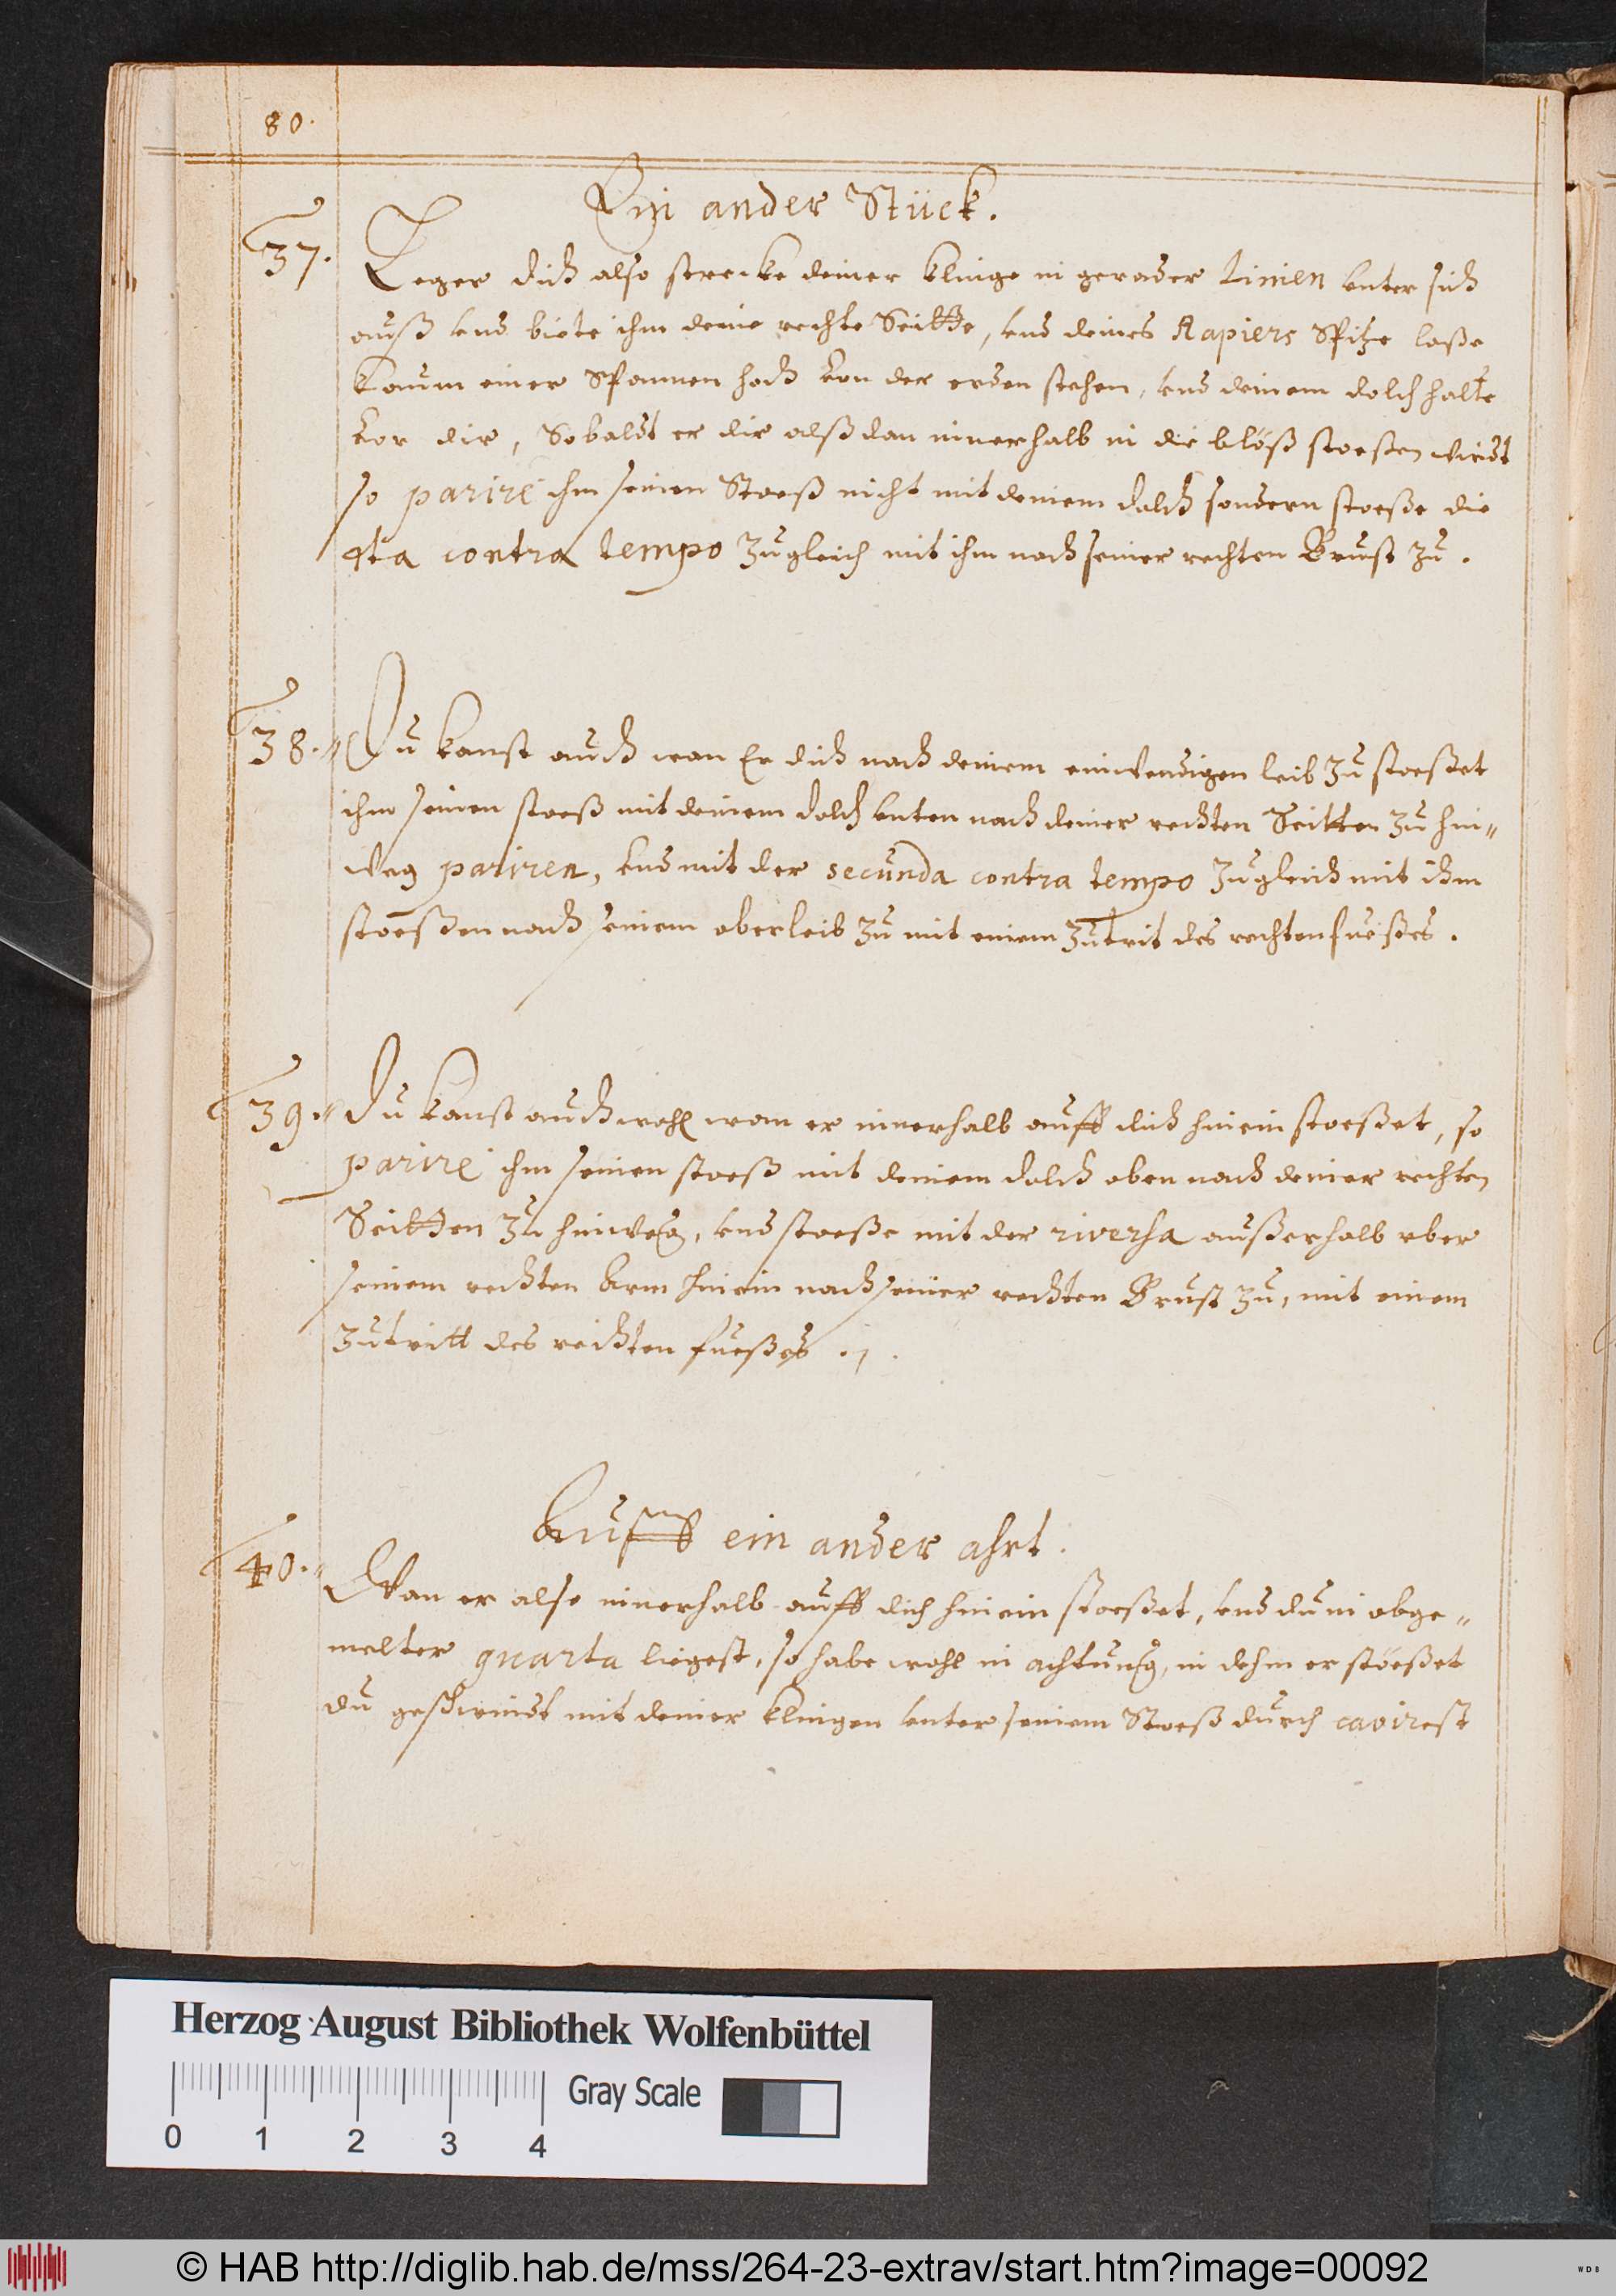 80.
Ein ander Stück.
37. Leger dich also strecke deiner klinge in gerader Linien vnter sich
auß vnd biete ihm deine rechte Seitte, vnd deines Rapiers Spitze laße
kaum einer Spannen hoch von der erden stehen, vnd deinem dolch halte
vor dir, So baldt er dir alß dan innerhalb in die blöß stoeßen wirdt
so parire ihm seinen Stoeß nicht mit deinem dolch sondern stoeße die
4ta contra tempo zugleich mit ihm nach seiner rechten Brust zu.
38. Du kanst auch wan Er dich nach deinem einwendigen leib zu stoeßet
ihm seinen stoeß mit deinem dolch vnten nach deiner rechten Seitten zu hin„
weg pariren, vnd mit der secunda contra tempo zugleich mit ihm
stoeßen nach seinem oberleib zu mit einem zutrit des rechten fueßes.
39. Du kanst auch wohl wan er innerhalb auff dich hinein stoeßet, so
parire ihm seinen stoeß mit deinem dolch oben nach deiner rechten
Seitten zu hinweg, vnd stoeße mit der riversa außerhalb vber
seinem rechten Arm hinein nach seiner rechten Brust zu, mit einem
zutritt des rechten fueßes.
Auff ein ander ahrt.
40. Wan er also innerhalb auff dich hinein stoeßet, vnd du in obge„
melter quarta liegest, so habe wohl in achtung, in dehm er stoeßet
du geschwindt mit deiner klingen vnter seinem Stoeß durch cavirest
Herzog August Bibliothek Wolfenbüttel
Gray Scale
0 1 2 3 4
© HAB http://diglib.hab.de/mss/264-23-extrav/start.htm?image=00092
WDB